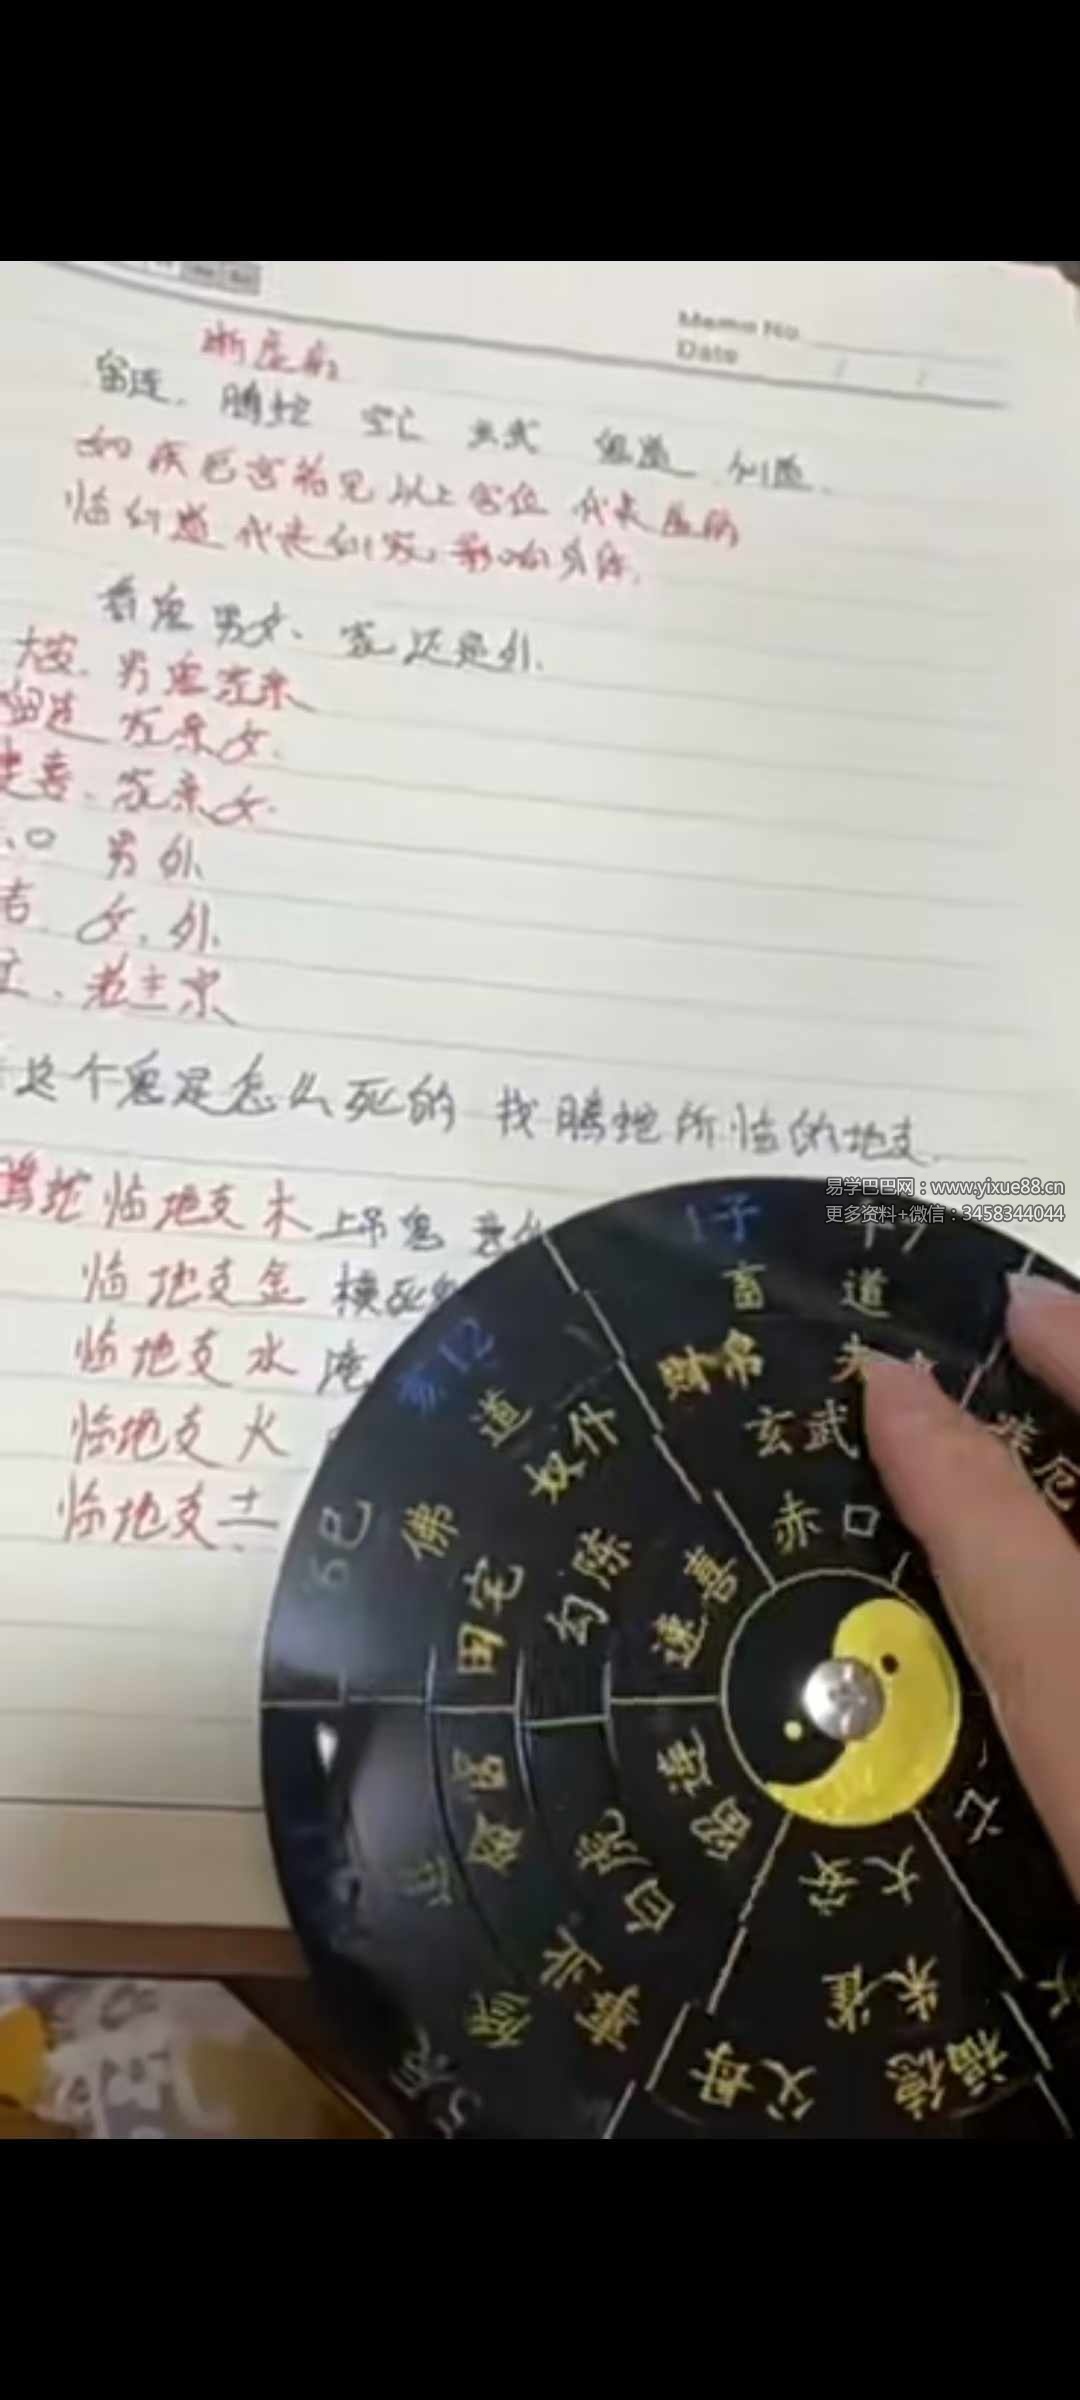 Memo No.
Date
断虚病
留连. 腾蛇 空亡 玄武 鬼道 仙道.
如疾厄宫若见以上宫位 代表虚病
临仙道代表仙家.影响身体.
看鬼男女、家还是外.
大安. 男鬼家亲
留连 家亲女.
速喜. 家亲女.
口 男外
吉. 女. 外.
这个鬼是怎么死的 找腾蛇所临的地支.
腾蛇临地支木 上吊鬼 意外
临地支金 横死鬼
临地支水 淹
临地支火
临地支土.
易学巴巴网：www.yixue88.cn
更多资料+微信：3458344044
1子
亥12
6巳
5辰
畜 道
财帛
玄武
赤口
疾厄
道
佛
奴仆
田宅
勾陈
速喜
留连
白虎
事业
命宫
大安
朱雀
父母
福德
亡